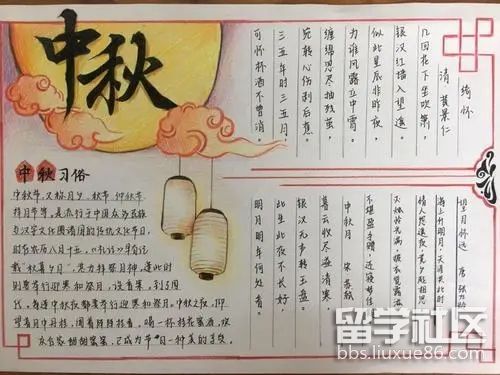 中秋
中秋习俗
中秋节，又称月夕、秋节、仲秋节
拜月节等，是流行于中国众多民族
与汉字文化圈诸国的传统文化节日，
时在农历八月十五，《礼记》早有记
载“秋暮夕月”，意为拜祭月神，逢此时
则要举行迎寒和祭月，设香案。到了周
代，每逢中秋夜都要举行迎寒和祭月。中秋之夜，仰
望着月中丹桂，闻着阵阵桂香，喝一杯桂花蜜酒，欢
庆合家甜甜蜜蜜，已成为节日一种美的享受
绮怀
清 黄景仁
几回花下坐吹箫，
银汉红墙入望遥。
似此星辰非昨夜，
为谁风露立中宵。
缠绵思尽抽残茧，
宛转心伤剥后蕉。
三五年时三五月，
可怜杯酒不曾消。
望月怀远 唐 张九龄
海上升明月，天涯共此时
情人怨遥夜，竟夕起相思
灭烛怜光满，披衣觉露滋
不堪盈手赠，还寝梦佳期
中秋月 宋 苏轼
暮云收尽溢清寒，
银汉无声转玉盘。
此生此夜不长好，
明月明年何处看。
留学社区
bbs.liuxue86.com